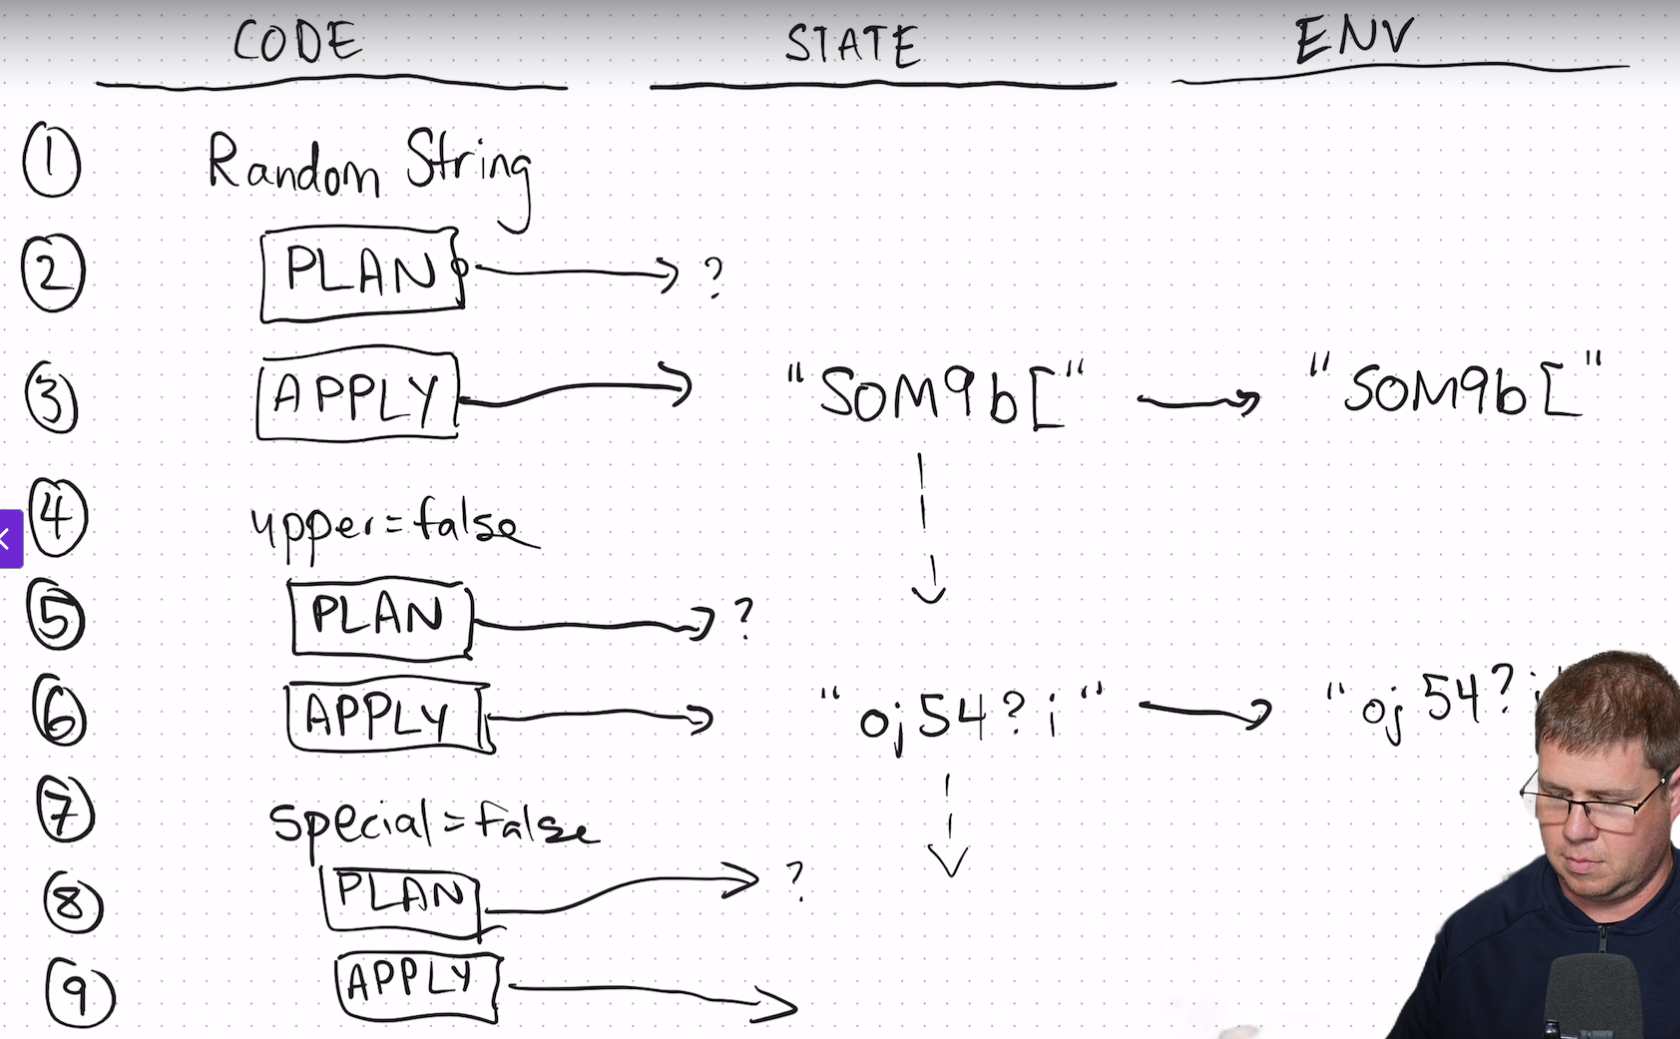 CODE STATE ENV
1 Random String
2 PLAN ?
3 APPLY "SOM9b[" "SOM9b["
4 upper=false
5 PLAN ?
6 APPLY "oj54?i" "oj54?i
7 special=false
8 PLAN ?
9 APPLY